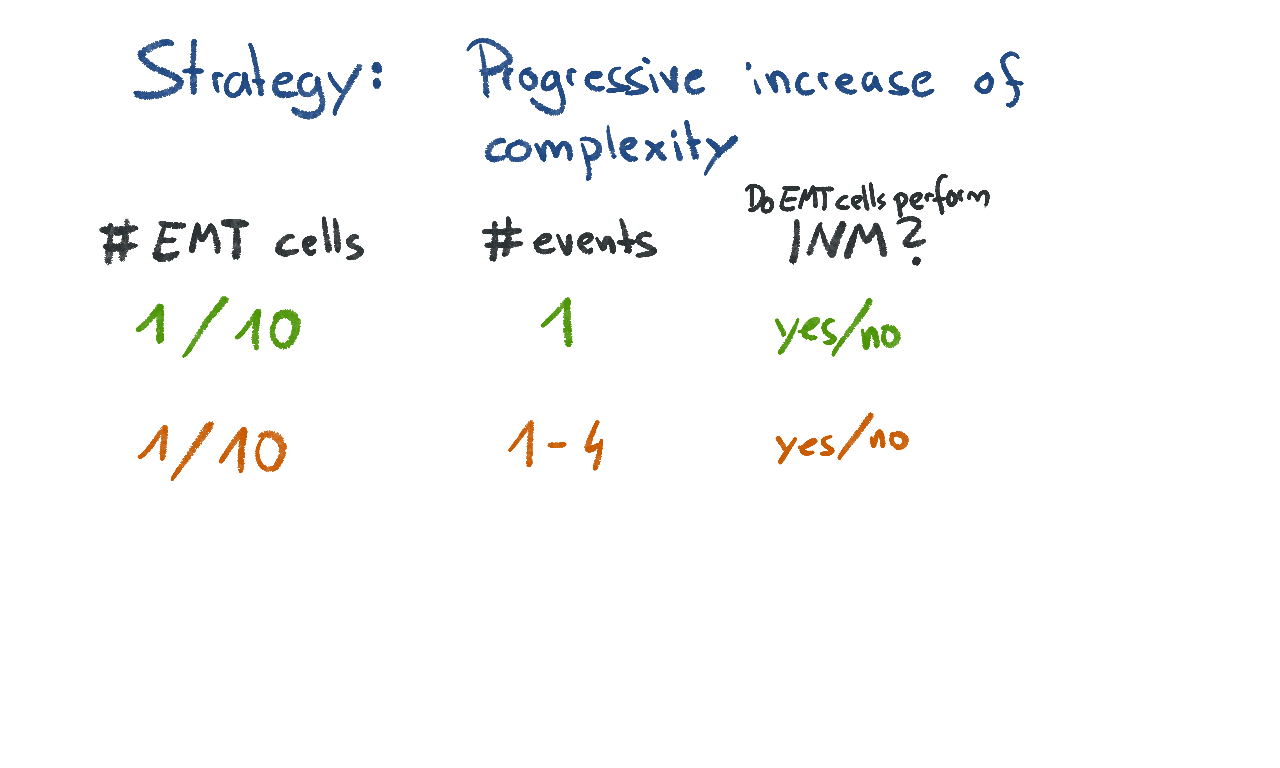 Strategy: Progressive increase of
complexity
Do EMT cells perform
# EMT cells # events INM?
1/10 1 yes/no
1/10 1-4 yes/no